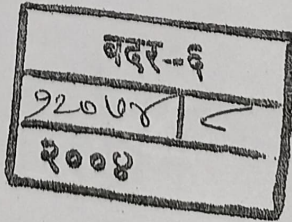 बदर--६
१२०७४ | ८
२००४